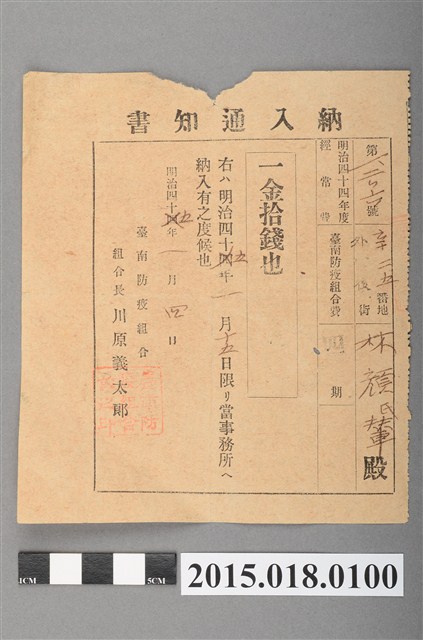 納入通知書
第六二六號
壹二五番地
外　街
林顏氏輦殿
明治四十四年度
經常費
臺南防疫組合費
四期
一金拾錢也
右ハ明治四十五年一月十五日限リ當事務所ヘ
納入有之度候也
明治四十五年一月四日
臺南防疫組合
組合長川原義太郎
1CM
5CM
2015.018.0100